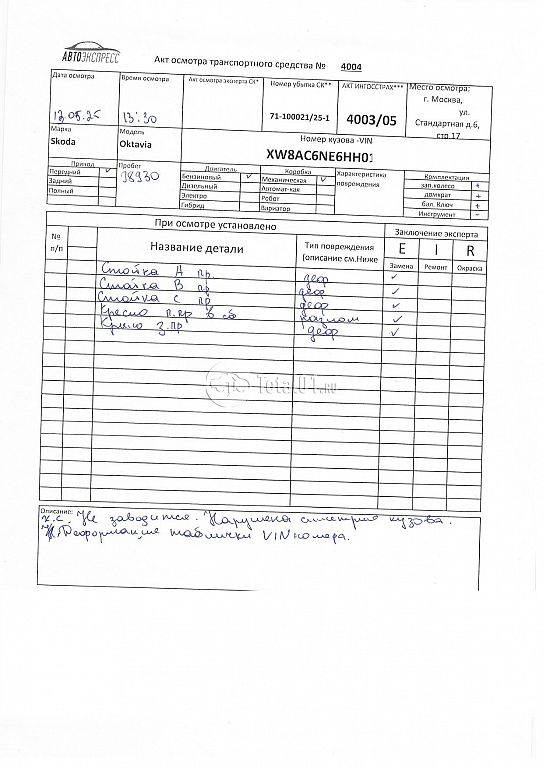 АВТОЭКСПРЕСС
Акт осмотра транспортного средства № 4004
Дата осмотра Время осмотра Акт осмотра эксперта СК* Номер убытка СК** АКТ ИНГОССТРАХ*** Место осмотра:
13:30 71-100021/25-1 4003/05 г. Москва,
ул.
Стандартная д.6,
стр.17
Марка Модель Номер кузова -VIN
Skoda Oktavia XW8AC6NE6HH01
Привод Пробег Двигатель Коробка Характеристика повреждения Комплектация
Передний ✓ 98930 Бензиновый ✓ Механическая ✓ зап.колесо +
Задний Дизельный Автомат-кая домкрат +
Полный Электро Робот бал. Ключ +
Гибрид Вариатор Инструмент -
При осмотре установлено Заключение эксперта
№ п/п Название детали Тип повреждения (описание см.Ниже E I R
Замена Ремонт Окраска
Стойка А пр. деф ✓
Стойка В пр деф ✓
Стойка С пр деф ✓
Кресло п.пр в сб разлом ✓
Крыло з.пр деф ✓
Total01.ru
Описание: х.с. Не заводится. Нарушена симетрия кузова.
Деформация таблички VIN номера.